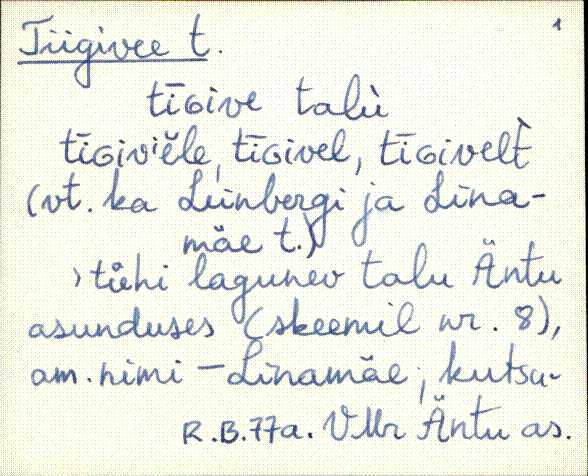 Tiigivee t. 1
tīGive talù
tīGiviĕle, tīGivel, tīGivelt̀
(vt. ka Liinbergi ja Lina-
mäe t.)
›tühi lagunev talu Äntu
asunduses (skeemil nr. 8),
am. nimi – Linamäe; kutsu-
R.B.77a. VMr Äntu as.